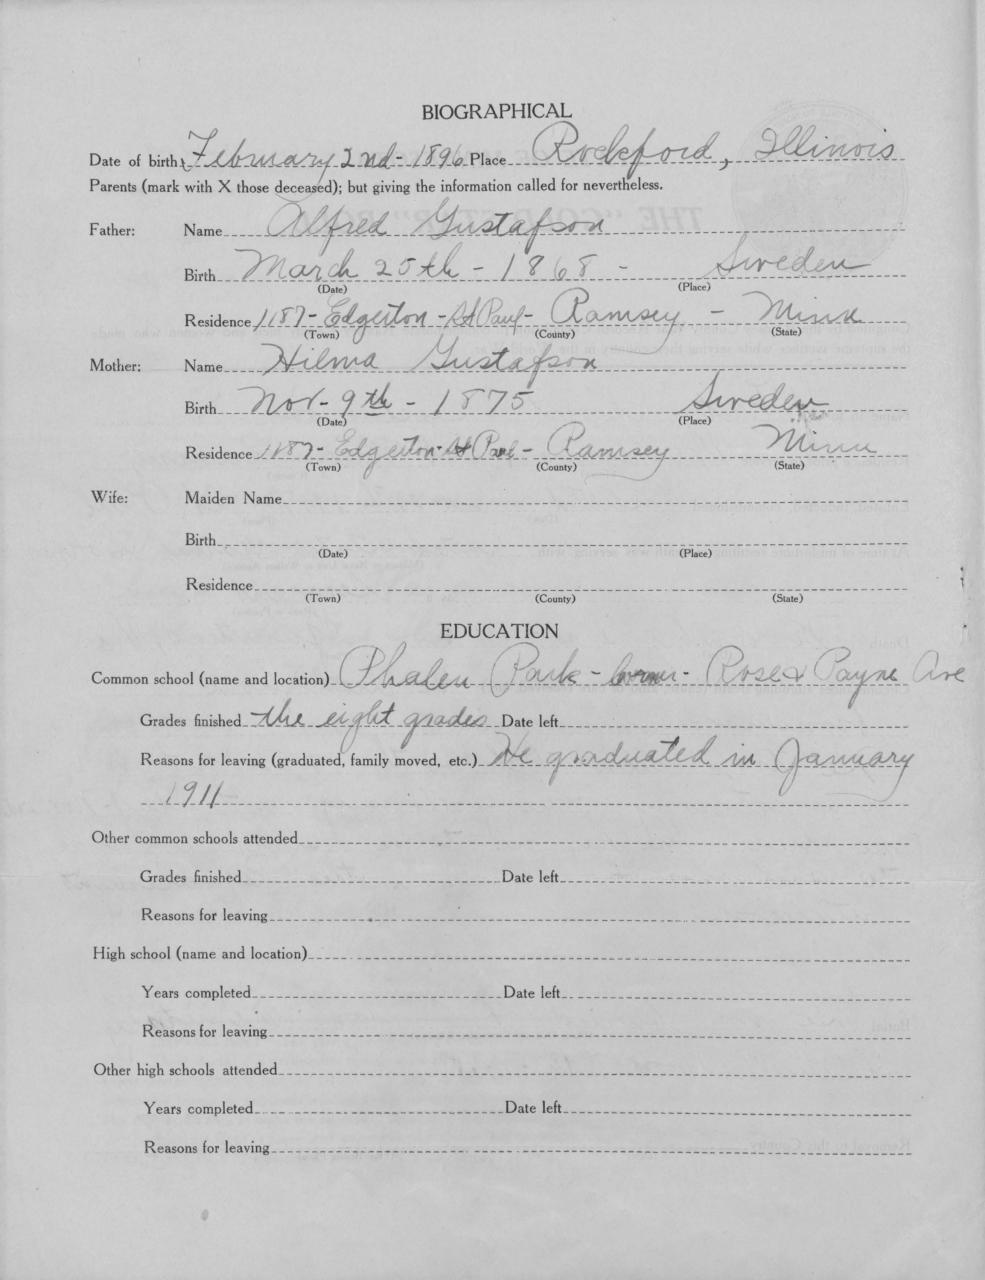 BIOGRAPHICAL
Date of birth February 2nd - 1896 Place Rockford, Illinois
Parents (mark with X those deceased); but giving the information called for nevertheless.
Father: Name Alfred Gustafson
Birth March 25th - 1868 - Sweden
(Date) (Place)
Residence 1187 - Edgerton - St Paul - Ramsey - Minn
(Town) (County) (State)
Mother: Name Hilma Gustafson
Birth Nov - 9th - 1875 Sweden
(Date) (Place)
Residence 1187 - Edgerton - St Paul - Ramsey Minn
(Town) (County) (State)
Wife: Maiden Name
Birth
(Date) (Place)
Residence
(Town) (County) (State)
EDUCATION
Common school (name and location) Phalen Park - Corner - Rose & Payne Ave
Grades finished the eight grades Date left
Reasons for leaving (graduated, family moved, etc.) He graduated in January
1911
Other common schools attended
Grades finished Date left
Reasons for leaving
High school (name and location)
Years completed Date left
Reasons for leaving
Other high schools attended
Years completed Date left
Reasons for leaving